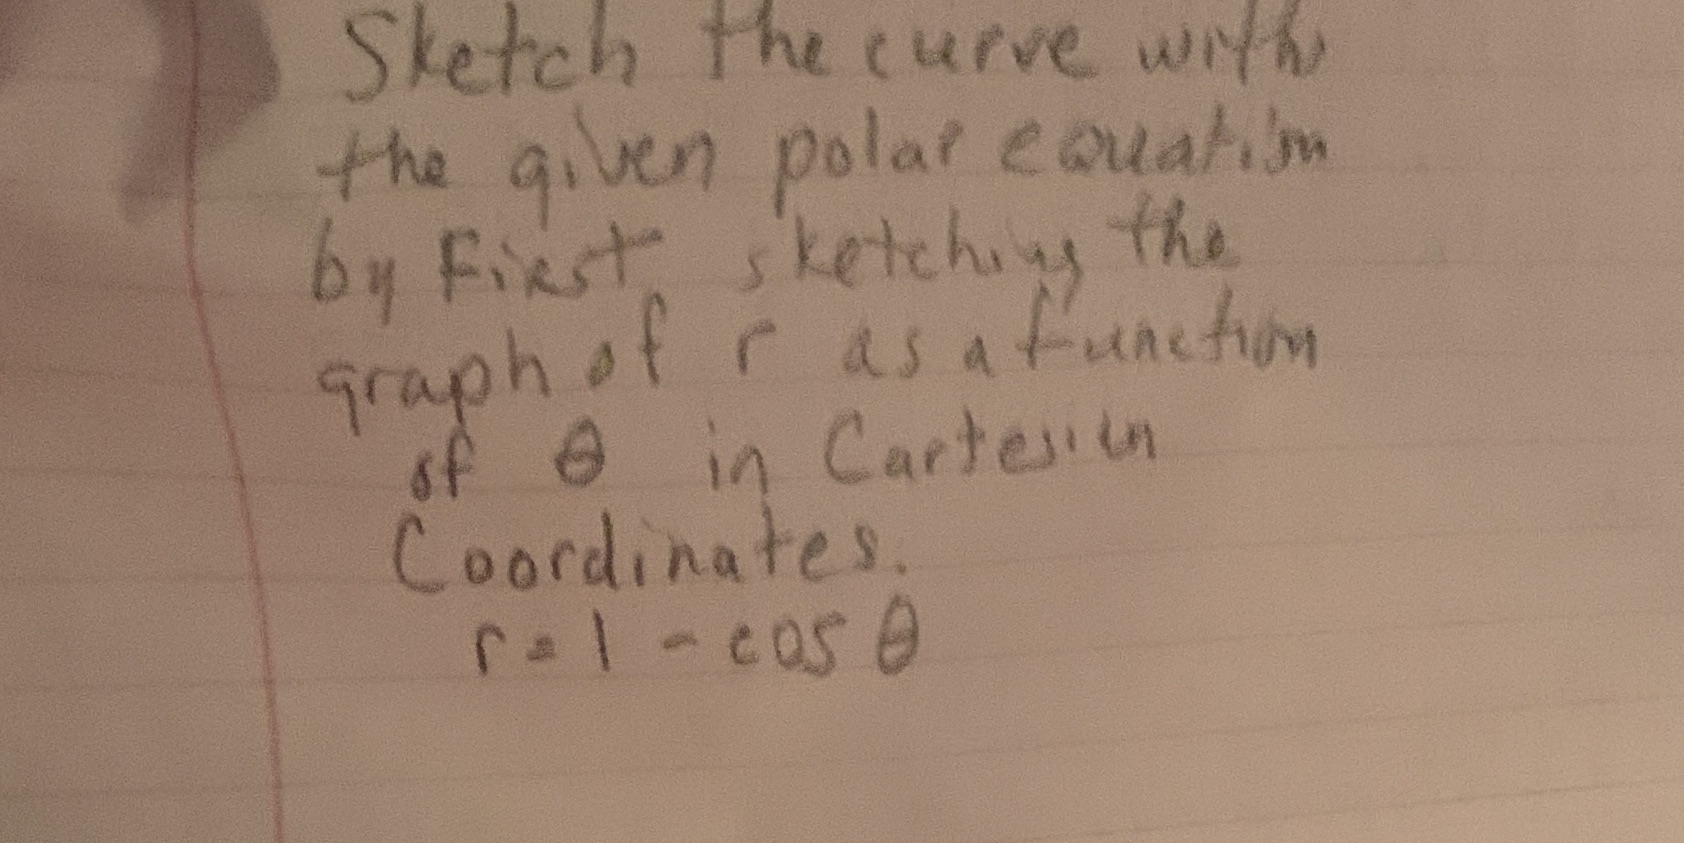 Sketch the curve with
the given polar equation
by First, sketching the
graph of r as a function
of θ in Cartesian
Coordinates.
r = 1 - cos θ